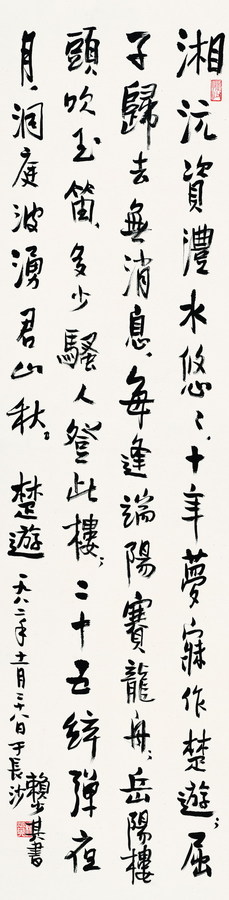 湘沅資澧水悠々、十年夢寐作楚遊；屈
子歸去無消息、每逢端陽賽龍舟；岳陽樓
頭吹玉笛、多少騷人登此樓；二十五絃彈夜
月、洞庭波湧君山秋。楚遊
一九八二年十一月二十八日于長沙
賴少其書